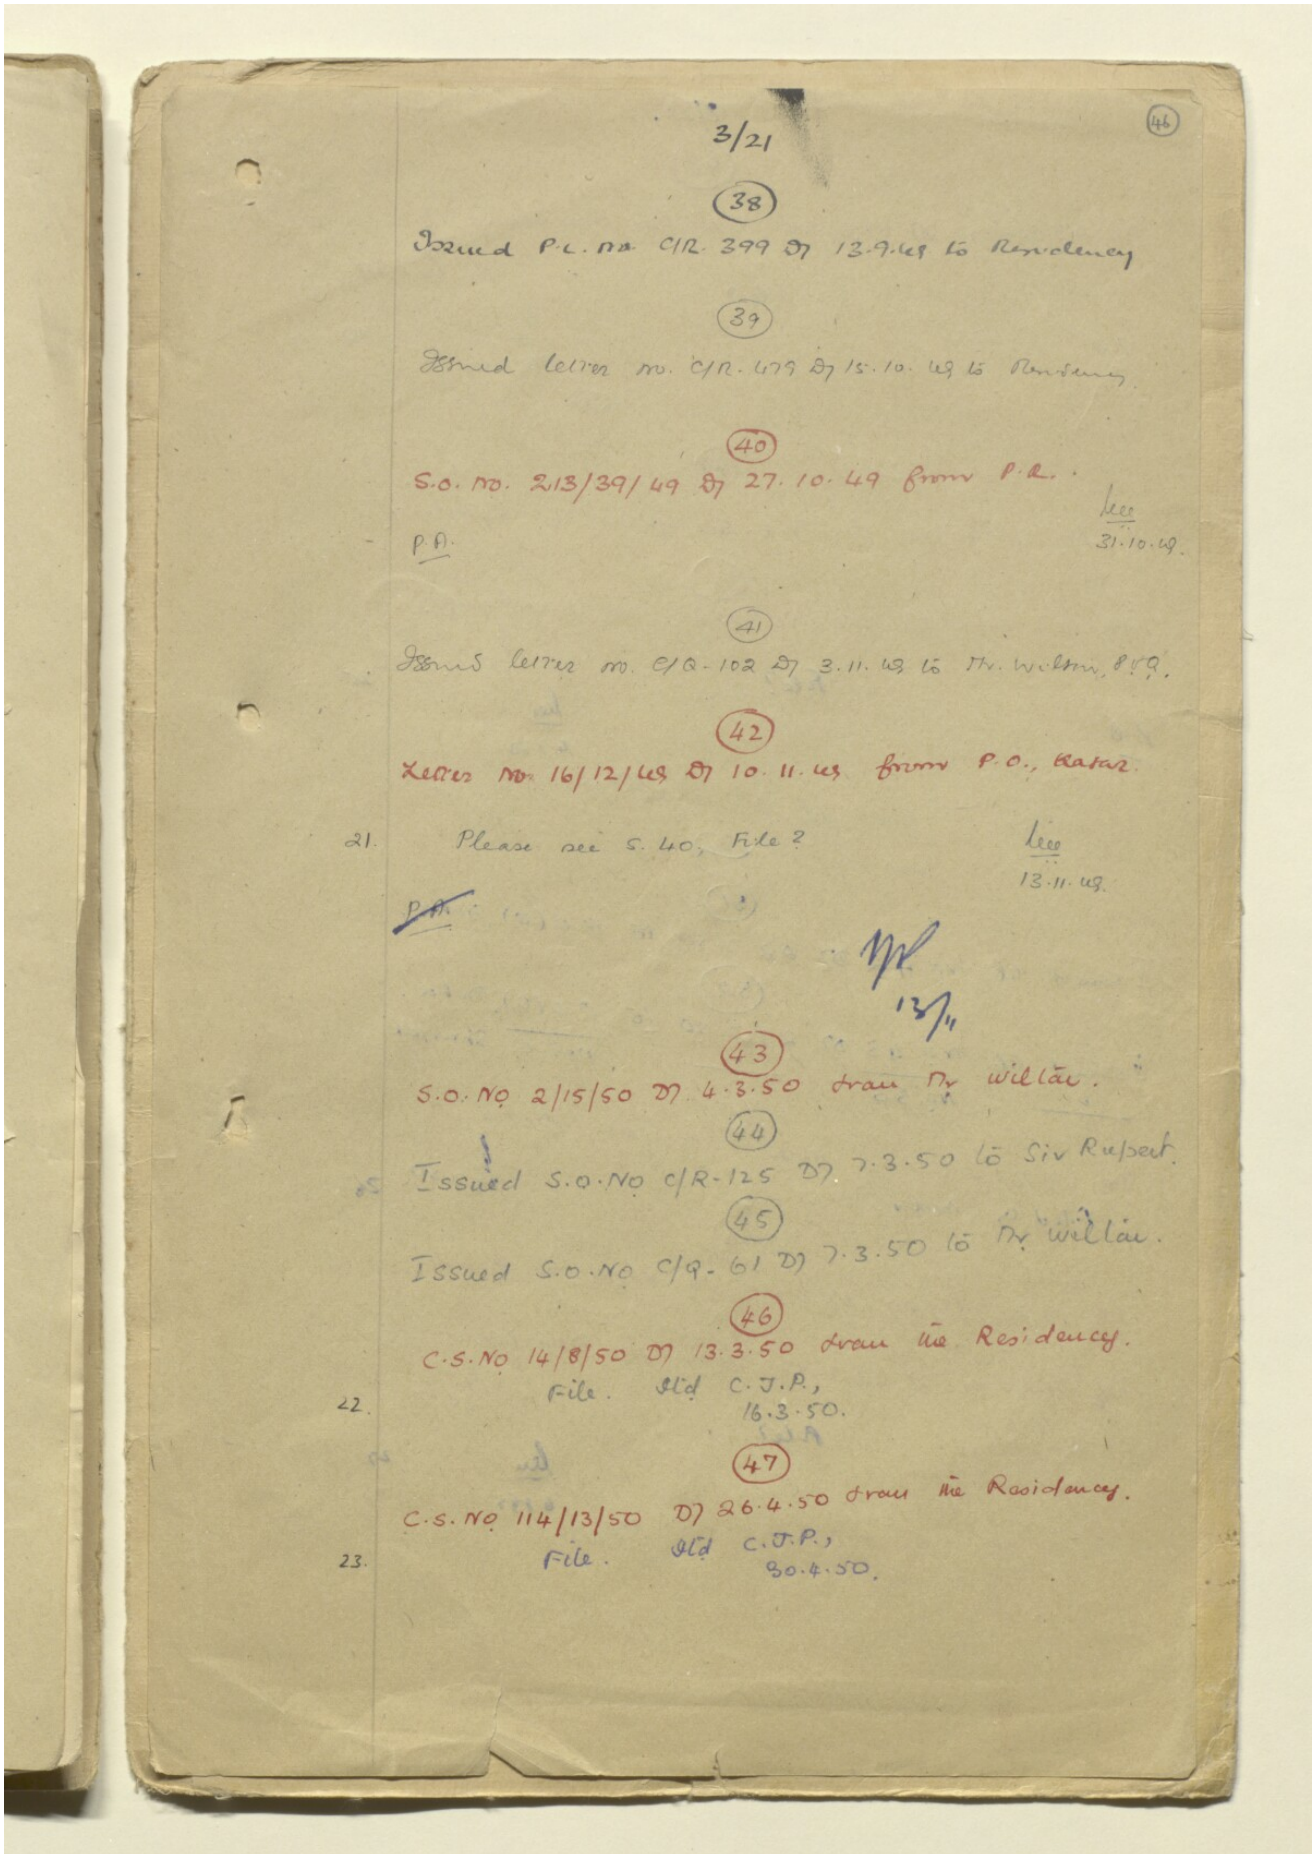 46
3/21
38
Issued P.L. no. C/R. 399 D/ 13.9.49 to Residency
39
Issued letter no. C/R. 479 D/ 15.10.49 to Residency.
40
S.O. no. 213/39/49 D/ 27.10.49 from P.R.
31.10.49.
P.A.
41
Issued letter no. C/Q-102 D/ 3.11.49 to Mr. Wilton,
42
Letter no. 16/12/49 D/ 10.11.49 from P.O., Katar.
21. Please see S. 40. File?
13.11.49.
P.A.
13/11
43
S.O. No 2/15/50 D/ 4.3.50 from Mr Wilton.
44
Issued S.O. No C/R-125 D/ 7.3.50 to Sir Rupert.
45
Issued S.O. No C/Q-61 D/ 7.3.50 to Mr Wilton.
46
C.S. No 14/8/50 D/ 13.3.50 from the Residency.
22. File. Itld C.J.P.,
16.3.50.
47
C.S. No 114/13/50 D/ 26.4.50 from the Residency.
23. File. Itld C.J.P.,
30.4.50.